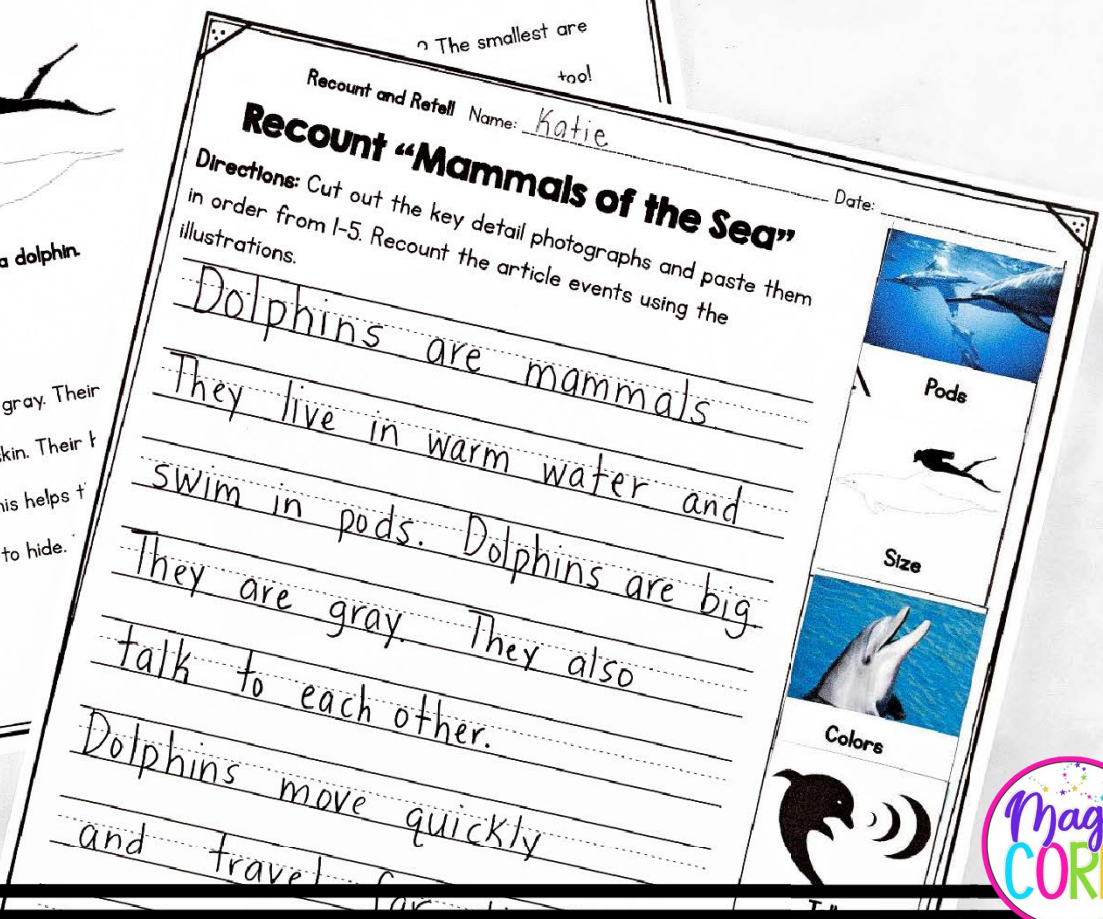 The smallest are
too!
a dolphin.
gray. Their
skin. Their
his helps
to hide.
Recount and Retell Name: Katie
Date:
Recount “Mammals of the Sea”
Directions: Cut out the key detail photographs and paste them
in order from 1-5. Recount the article events using the
illustrations.
Dolphins are mammals.
They live in warm water and
swim in pods. Dolphins are big.
They are gray. They also
talk to each other.
Dolphins move quickly
and travel far
Pods
Size
Colors